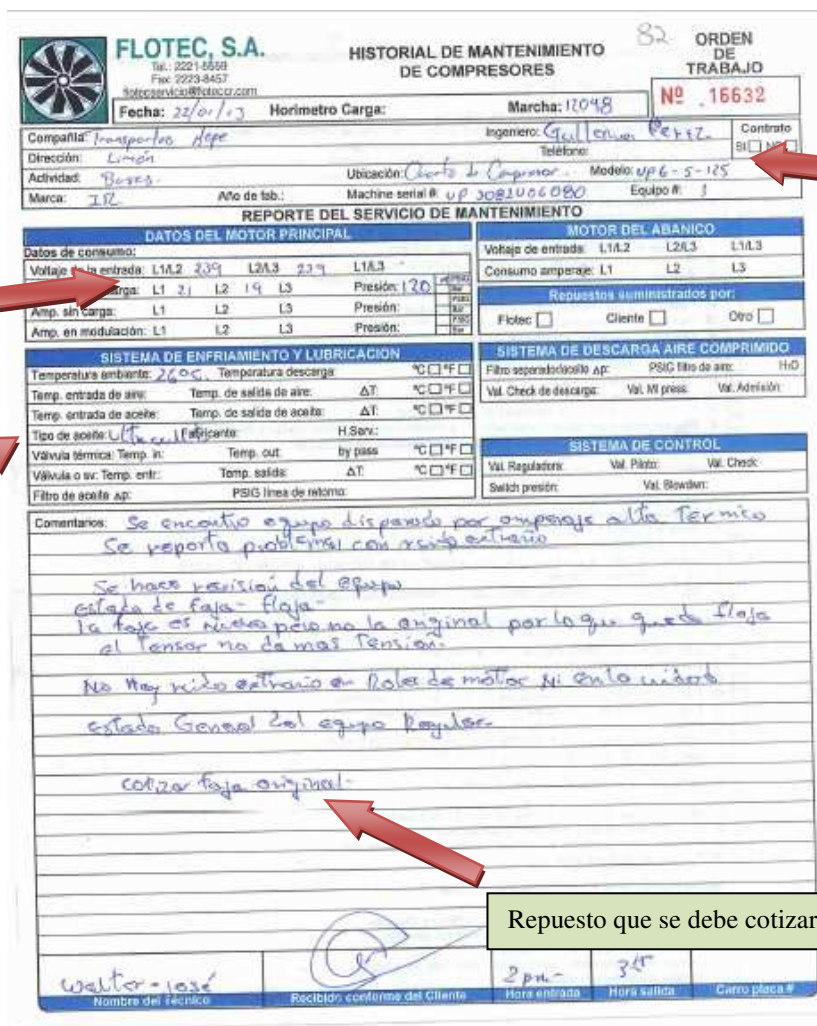 82
FLOTEC, S.A.
Tel.: 2221-5559
Fax: 2223-8457
HISTORIAL DE MANTENIMIENTO
DE COMPRESORES
ORDEN
DE
TRABAJO
Nº 16632
Fecha: 22/01/13 Horimetro Carga: Marcha: 12098
Compañía: Transportes Ingeniero: Guillermo Perez Contrato
Dirección: Limón Teléfono: SI NO
Actividad: Buses Ubicación: Cuarto de Compresor Modelo: UP6-5-125
Marca: IR Año de fab.: Machine serial #: UP Equipo #: 1
REPORTE DEL SERVICIO DE MANTENIMIENTO
DATOS DEL MOTOR PRINCIPAL
Datos de consumo:
Voltaje de la entrada: L1/L2 239 L2/L3 239 L1/L3
L1 21 L2 19 L3 Presión: 120
Amp. sin carga: L1 L2 L3 Presión:
Amp. en modulación: L1 L2 L3 Presión:
MOTOR DEL ABANICO
Voltaje de entrada: L1/L2 L2/L3 L1/L3
Consumo amperaje: L1 L2 L3
Repuestos suministrados por:
Flotec Cliente Otro
SISTEMA DE ENFRIAMIENTO Y LUBRICACION
Temperatura ambiente: 26°C Temperatura descarga: °C °F
Temp. entrada de aire: Temp. de salida de aire: ΔT: °C °F
Temp. entrada de aceite: Temp. de salida de aceite: ΔT: °C °F
Tipo de aceite: Fabricante: H.Serv.:
Válvula térmica: Temp. in: Temp. out: by pass °C °F
Válvula o sv: Temp. entr.: Temp. salida: ΔT: °C °F
Filtro de aceite Δp: PSIG línea de retorno:
SISTEMA DE DESCARGA AIRE COMPRIMIDO
Filtro separador/aceite Δp: PSIG filtro de aire: H₂O
Val. Check de descarga: Val. MI press: Val. Admisión:
SISTEMA DE CONTROL
Val. Reguladora: Val. Piloto: Val. Check:
Switch presión: Val. Blowdwn:
Comentarios: Se encontro equipo disparado por amperaje alto Termico
Se reporta problemas con ruido extraño
Se hace revisión del equipo
estado de faja - floja-
la faja es nueva pero no la original por lo que queda floja
el Tensor no da mas Tensión.
No Hay ruido extraño en Roles de motor Ni en la unidad
estado General del equipo Regular
cotizar faja original-
Repuesto que se debe cotizar
Walter - José 2 pm-
Nombre del Técnico Recibido conforme del Cliente Hora entrada Hora salida Carro placa #